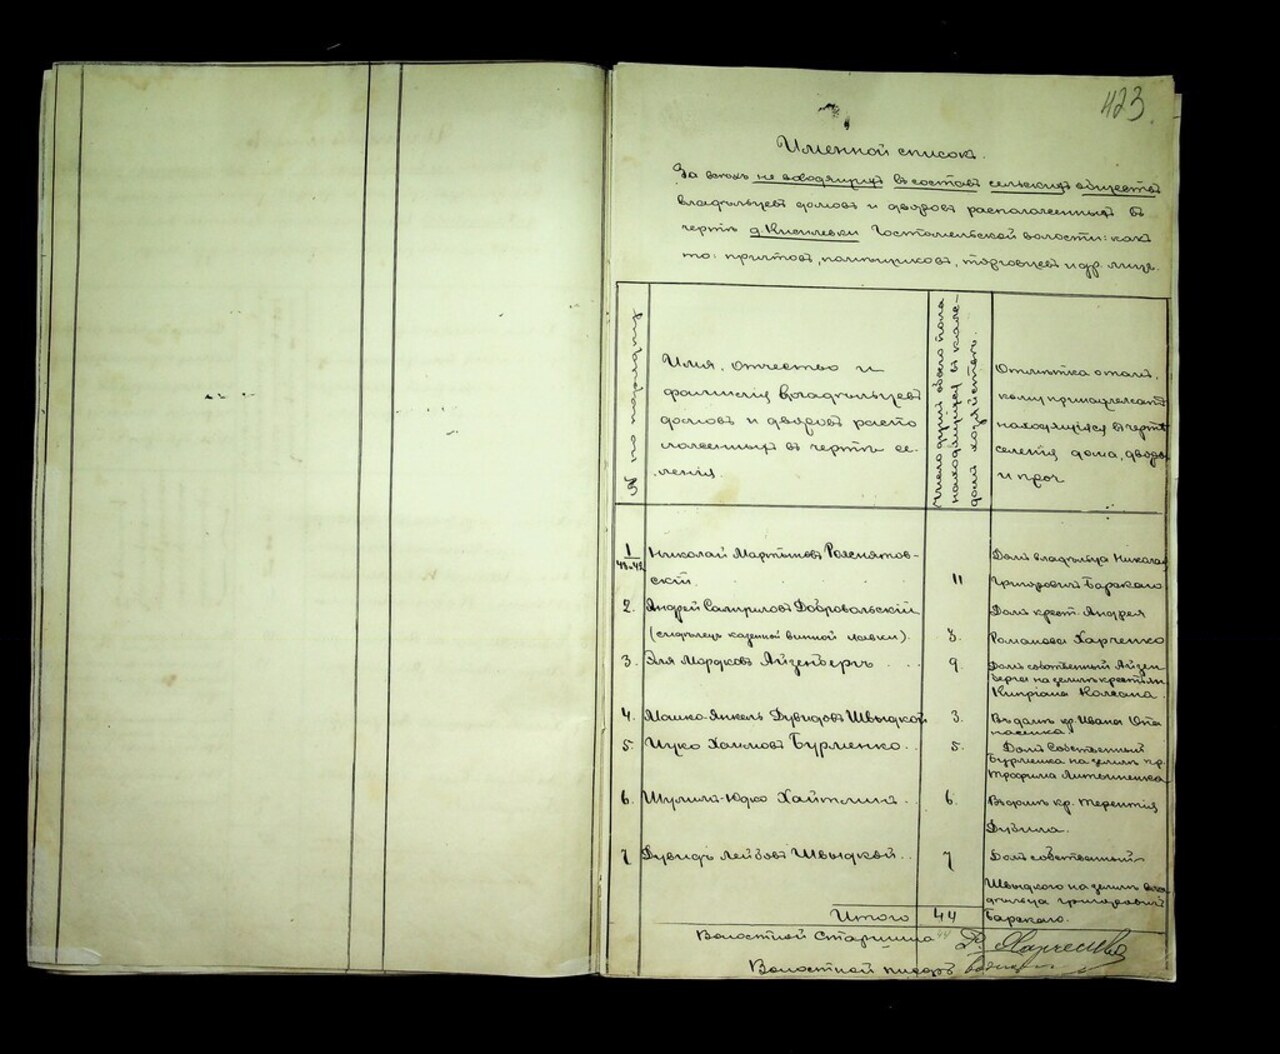 423.
Именной списокъ.
За всѣхъ не входящихъ въ составъ сельскихъ обществъ
владѣльцевъ домовъ и дворовъ расположенныхъ въ
чертѣ д. Киселевки Гостомельской волости: какъ
то: причтовъ, помѣщиковъ, торговцевъ и др. лицъ.
№ по порядку
Имя, отчество и
фамилія владѣльцевъ
домовъ и дворовъ распо
ложенныхъ въ чертѣ се-
ленія.
Число душъ обоего пола
находящихся въ каж-
домъ хозяйствѣ.
Отмѣтка о томъ,
кому принадлежатъ
находящіяся въ чертѣ
селенія дома, дворы
и проч
1
Николай Мартыновъ Рожнятов-
скій.
11
Домъ владѣльца Николая
Григоровичъ Барскаго
2. Андрей Добровольскій
(сидѣлецъ казенной винной лавки).
3.
Домъ крест. Андрея
Романова Харченко
3. Эля Мордковъ Айзенбергъ
9.
Домъ собственный Айзен
берга на землѣ крестьян.
Кипріана Колсана.
4. Мошко-Янкель Дувидовъ Швыдкой
3.
Въ домѣ кр. Ивана Опа
насенка.
5. Ицко Хаимовъ Бурменко
5.
Домъ Собственный
Бурменка на землѣ кр.
Трофима Литвиненка
6. Шулимъ-Юдко
6.
Въ домѣ кр. Терентія
7 Дувидъ Лейбовъ Швыдкой
7
Домъ собственный
Швыдкого на землѣ вла
дѣльца Григоровичъ
Барскаго.
Итого 44
Волостной Старшина Харченко
Волостной писарь